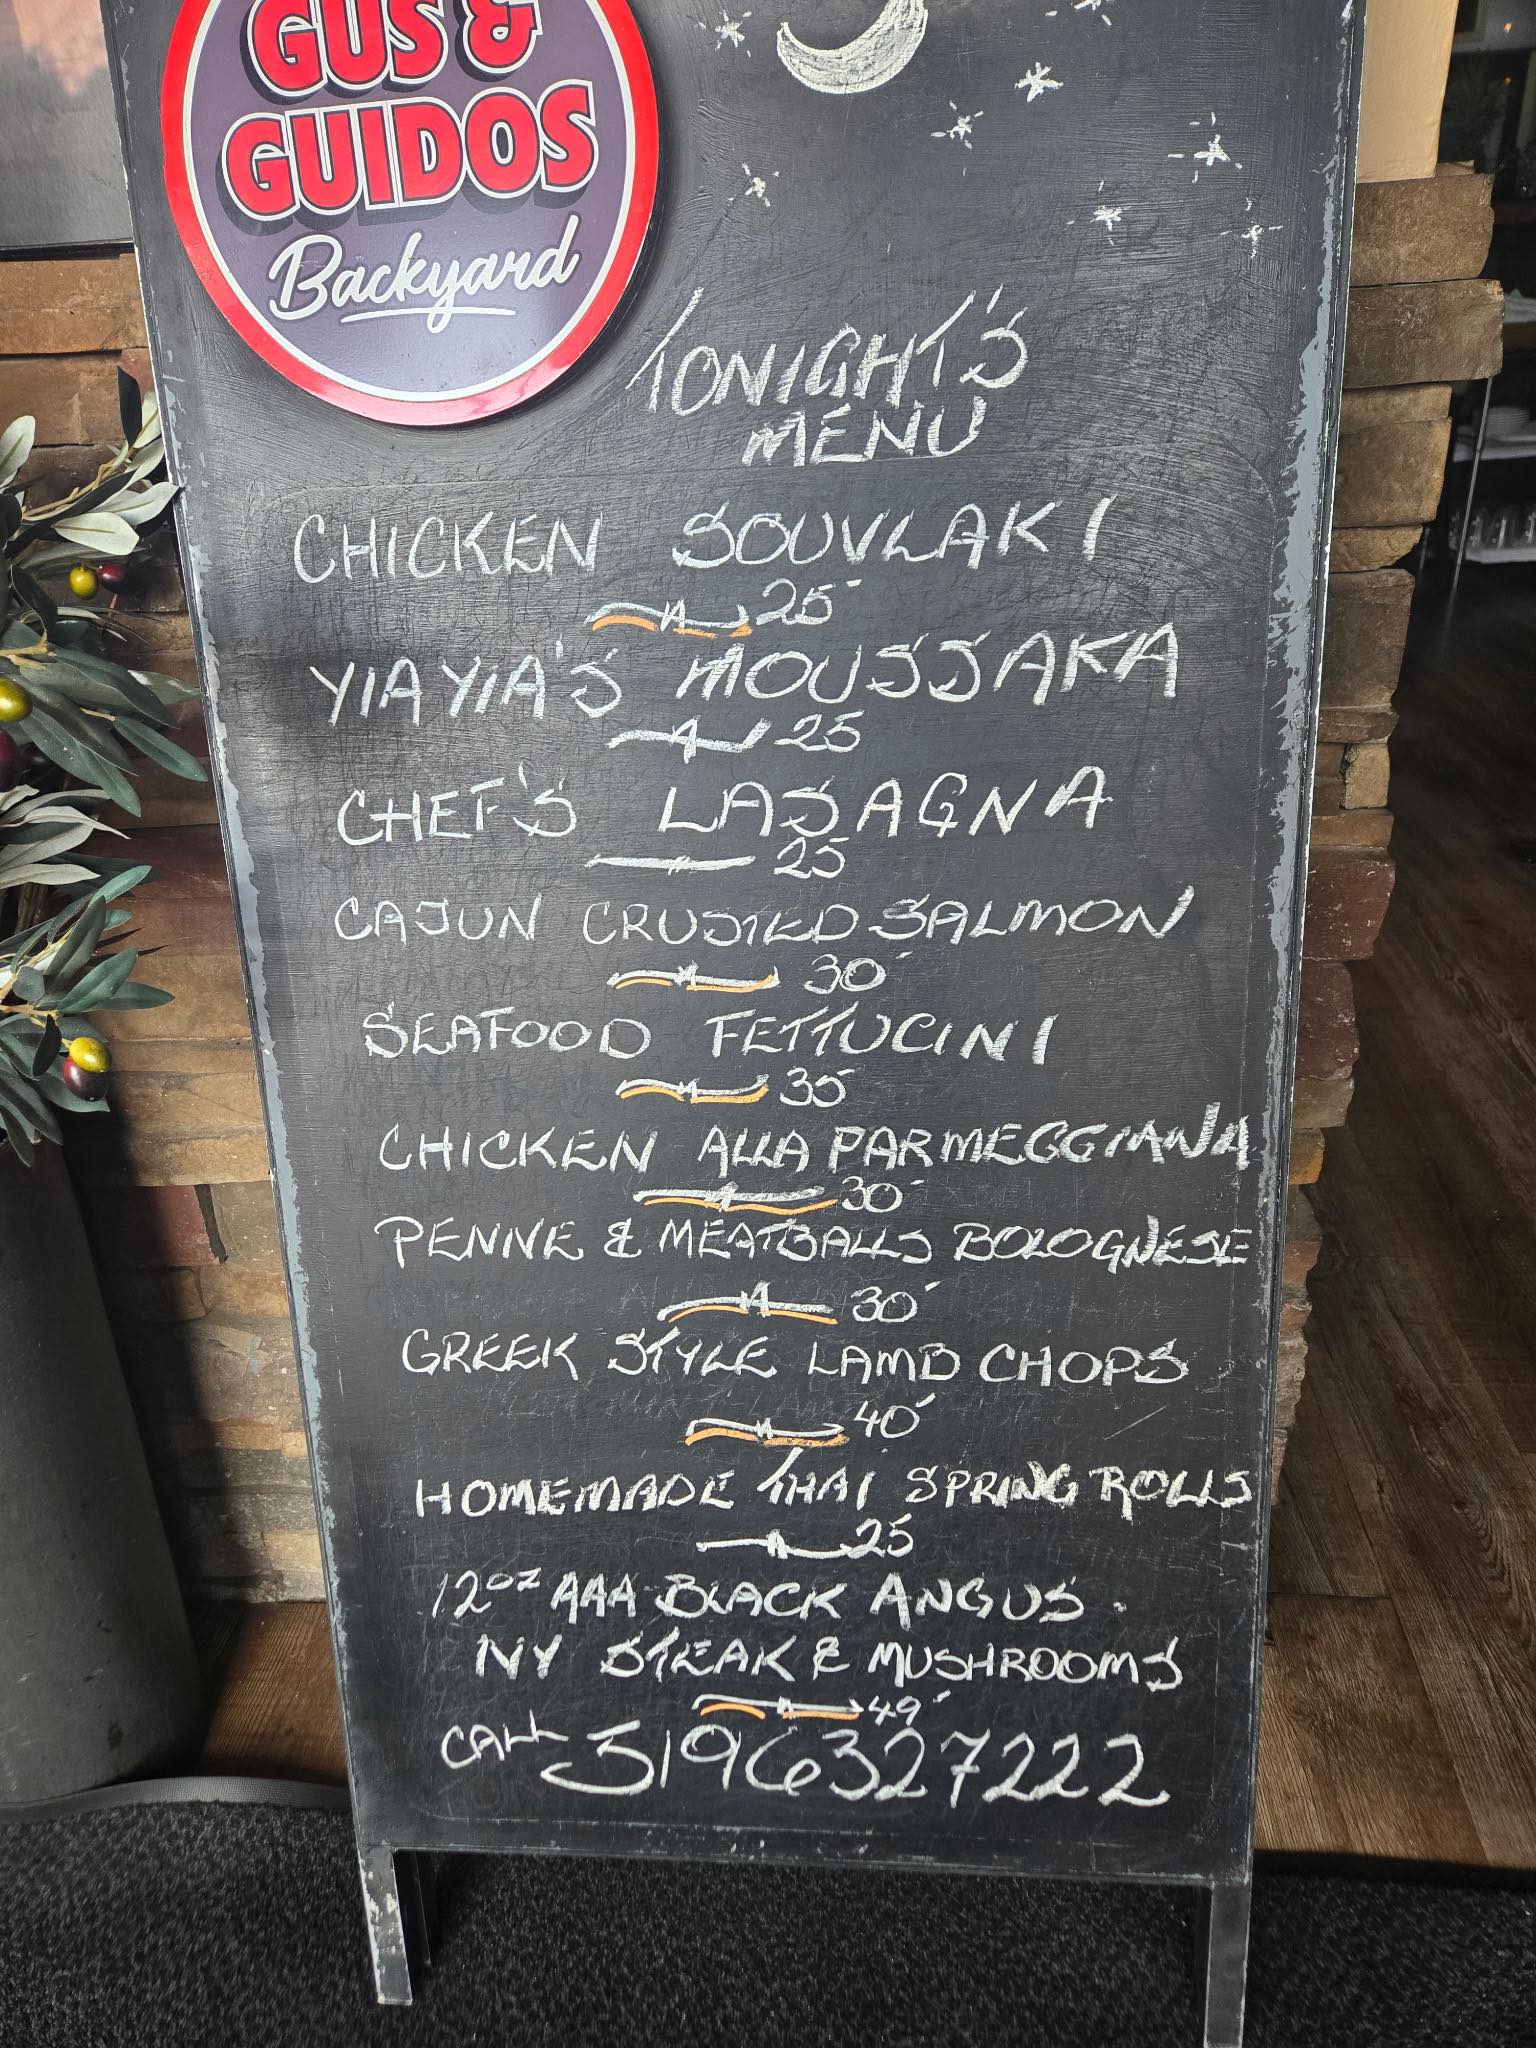 GUS &
GUIDOS
Backyard
TONIGHT'S
MENU
CHICKEN SOUVLAKI
25
YIAYIA'S MOUSSAKA
25
CHEF'S LASAGNA
25
CAJUN CRUSTED SALMON
30
SEAFOOD FETTUCINI
35
CHICKEN ALLA PARMEGGIANA
30
PENNE & MEATBALLS BOLOGNESE
30
GREEK STYLE LAMB CHOPS
40
HOMEMADE THAI SPRING ROLLS
25
12oz AAA BLACK ANGUS
NY STEAK & MUSHROOMS
49
CALL 5196327222